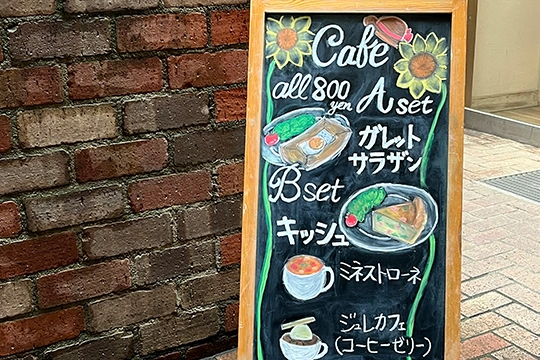 Café
all 800 yen
A set
ガレット
サラザン
B set
キッシュ
ミネストローネ
ジュレカフェ
(コーヒーゼリー)